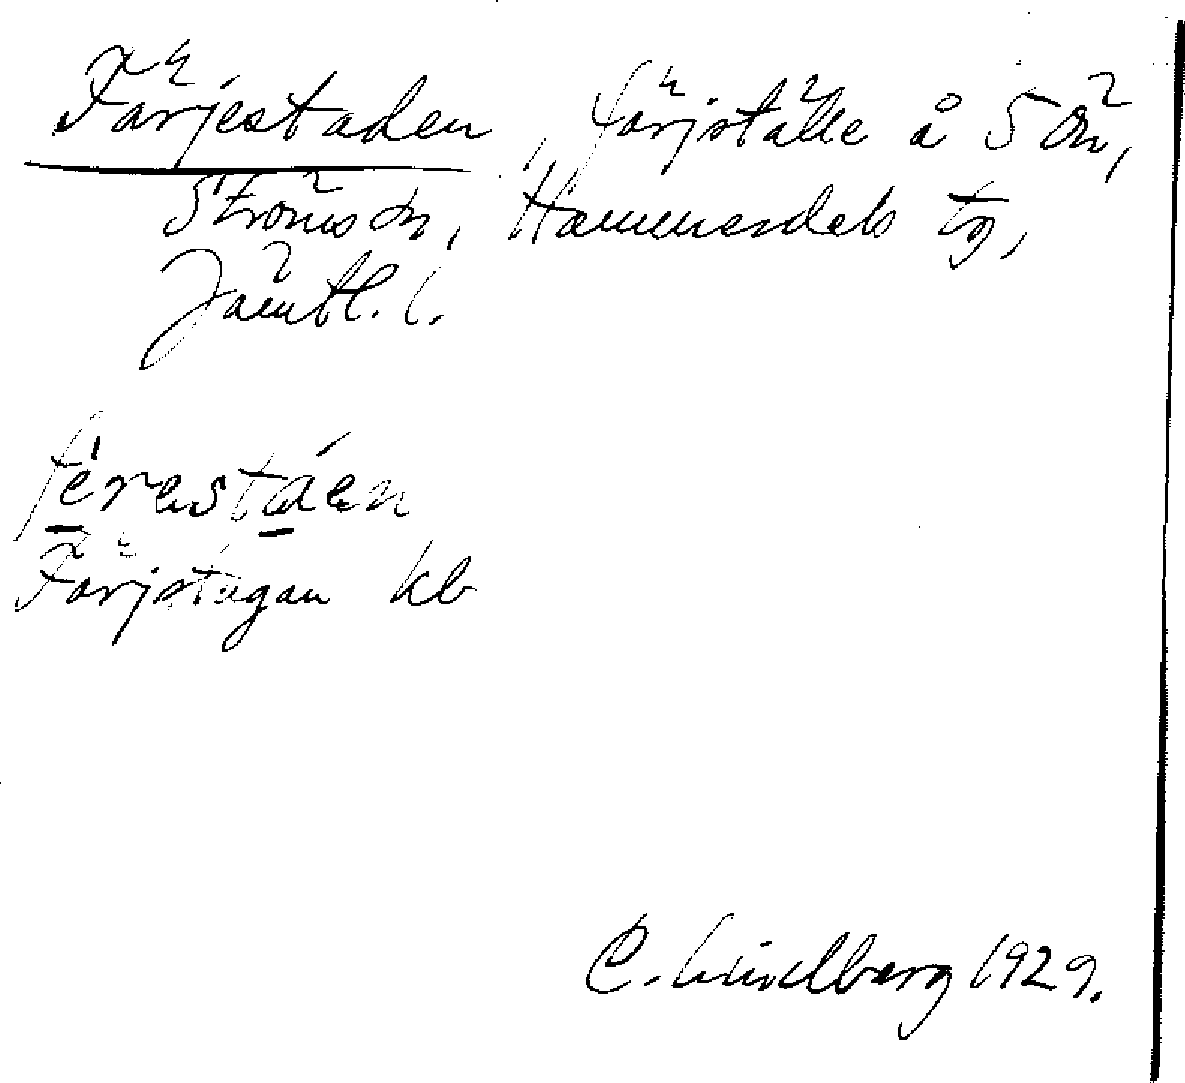 Färjestaden, färjställe å 5 ön,
Ströms sn, Hammerdals tg,
Jämtl. l.
fèrestáen
Färjstagan kb
C. Lindberg 1929.